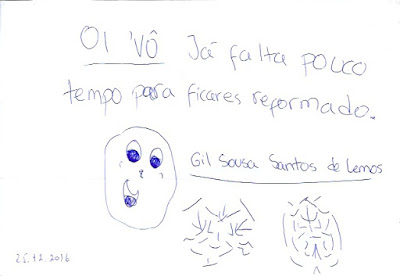 OI 'VÔ Já falta pouco
tempo para ficares reformado.
Gil Sousa Santos de Lemos
25.12.2016